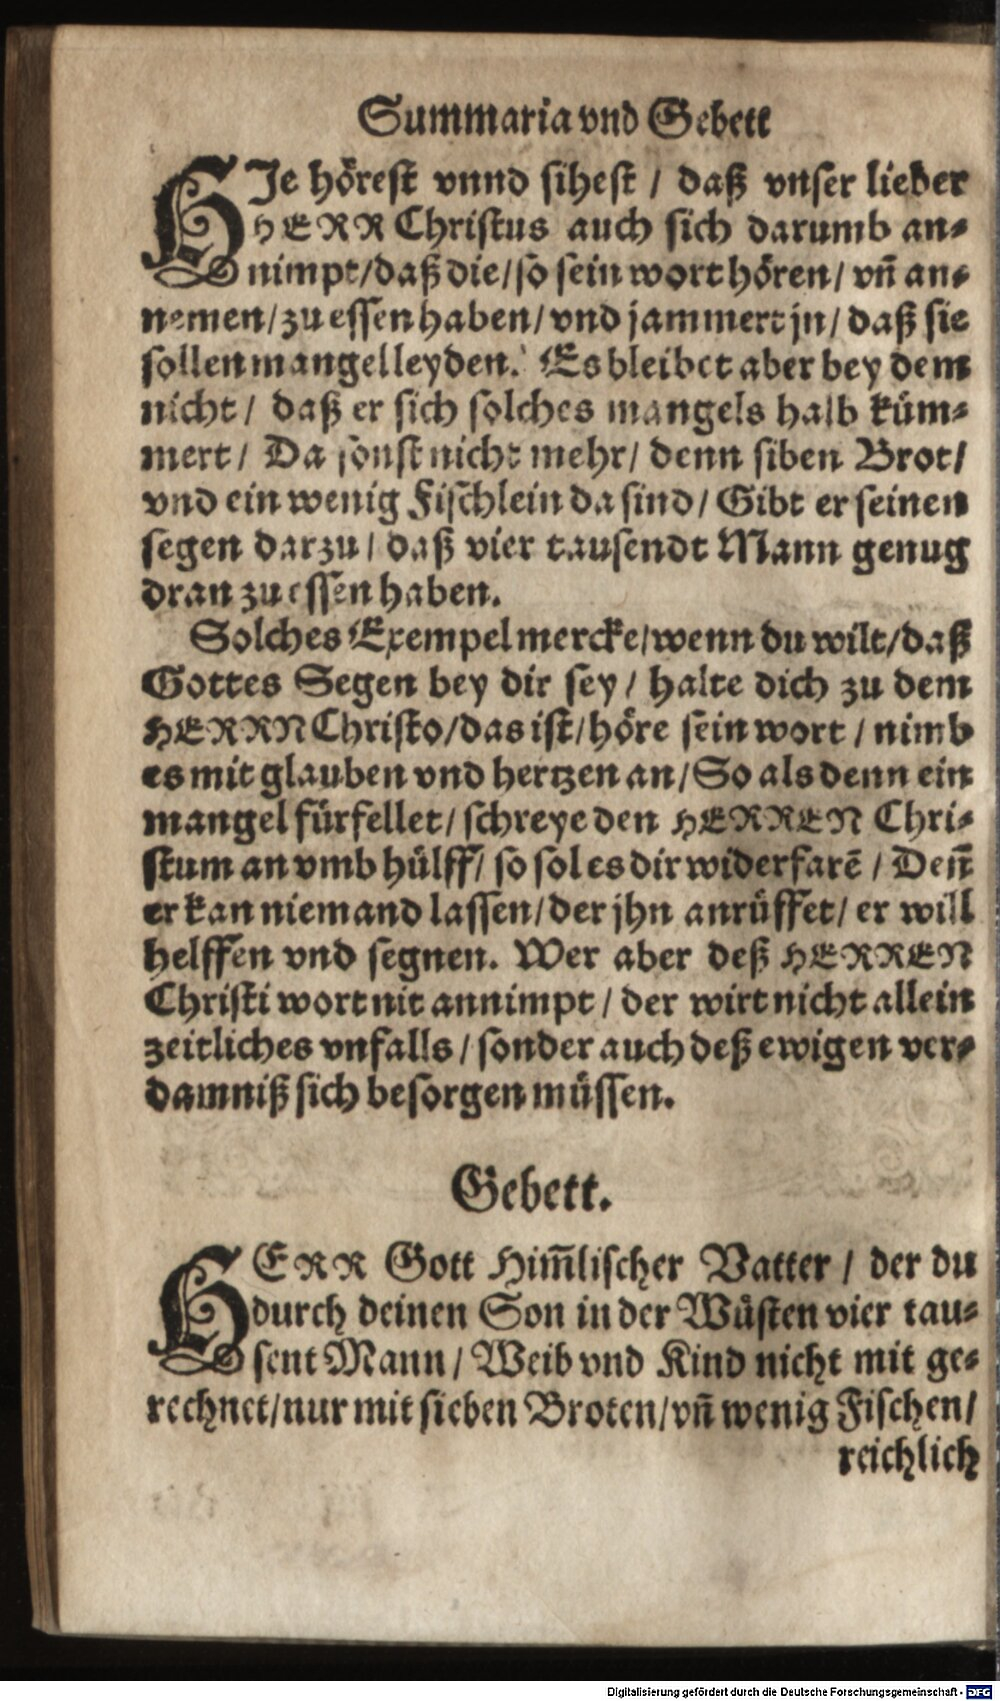 Summaria vnd Gebett
HJe hörest vnnd sihest / daß vnser lieber
HERR Christus auch sich darumb an-
nimpt/daß die/so sein wort hören/ vñ an-
nemen/zu essen haben/ vnd jammert jn/ daß sie
sollen mangel leyden. Es bleibet aber bey dem
nicht / daß er sich solches mangels halb küm-
mert / Da sonst nicht mehr/ denn siben Brot/
vnd ein wenig Fischlein da sind/ Gibt er seinen
segen darzu / daß vier tausendt Mann genug
dran zu essen haben.
Solches Exempel mercke/wenn du wilt/daß
Gottes Segen bey dir sey / halte dich zu dem
HERRN Christo/das ist/höre sein wort / nimb
es mit glauben vnd hertzen an/So als denn ein
mangel fürfellet/ schreye den HERREN Chri-
stum an vmb hülff/ so sol es dir widerfarē / Deñ
er kan niemand lassen/der jhn anrüffet/ er will
helffen vnd segnen. Wer aber deß HERREN
Christi wort nit annimpt / der wirt nicht allein
zeitliches vnfalls / sonder auch deß ewigen ver-
damniß sich besorgen müssen.
Gebett.
HERR Gott Him̃lischer Vatter / der du
durch deinen Son in der Wüsten vier tau-
sent Mann / Weib vnd Kind nicht mit ge-
rechnet/nur mit sieben Broten/vñ wenig Fischen/
reichlich
Digitalisierung gefördert durch die Deutsche Forschungsgemeinschaft - DFG